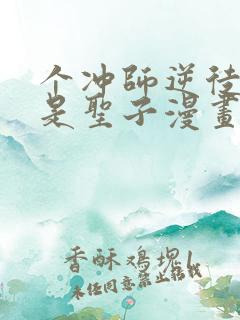 个冲師逆徒
是聖子漫畫
香酥鸡塊l
未经同意禁止转载